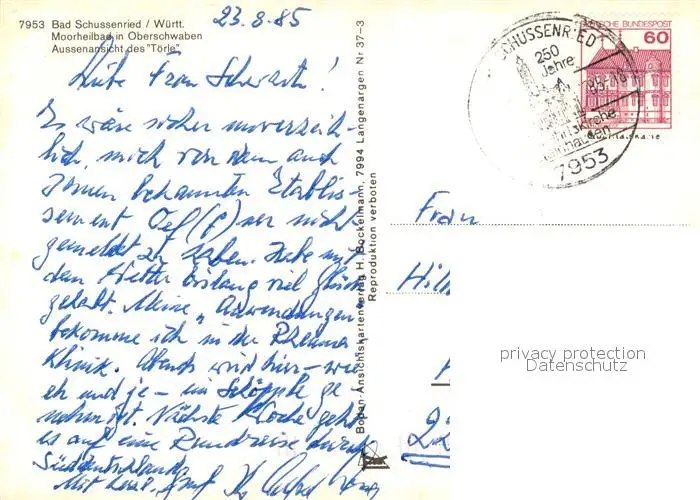 23.8.85
7953 Bad Schussenried / Württ.
Moorheilbad in Oberschwaben
Aussenansicht des "Törle"
Liebe Frau Schwartz!
Es wäre sicher unverzeih-
lich, mich von dem auch
Ihnen bekannten Etablis-
sement nicht
gemeldet zu haben. Habe mit
dem Wetter bislang viel Glück
gehabt. Meine "Anwendungen"
bekomme ich in der Rheuma
Klinik. Abends wird hier - wie
eh und je - ein Schöpple ge-
nehmigt. Nächste Woche geht
es auf eine Rundreise durch
Süddeutschland.
Mit herzl. Gruß Ihr
Bodan-Ansichtskartenverlag H. Bockelmann, 7994 Langenargen Nr 37-3
Reproduktion verboten
DEUTSCHE BUNDESPOST
60
SCHUSSENRIED
250
Jahre
7953
Frau
privacy protection
Datenschutz